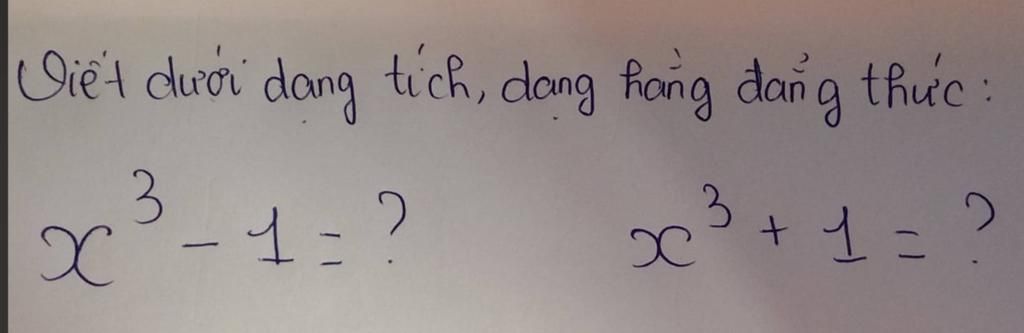 Viết dưới dạng tích, dạng hằng đẳng thức:
x³ - 1 = ? x³ + 1 = ?